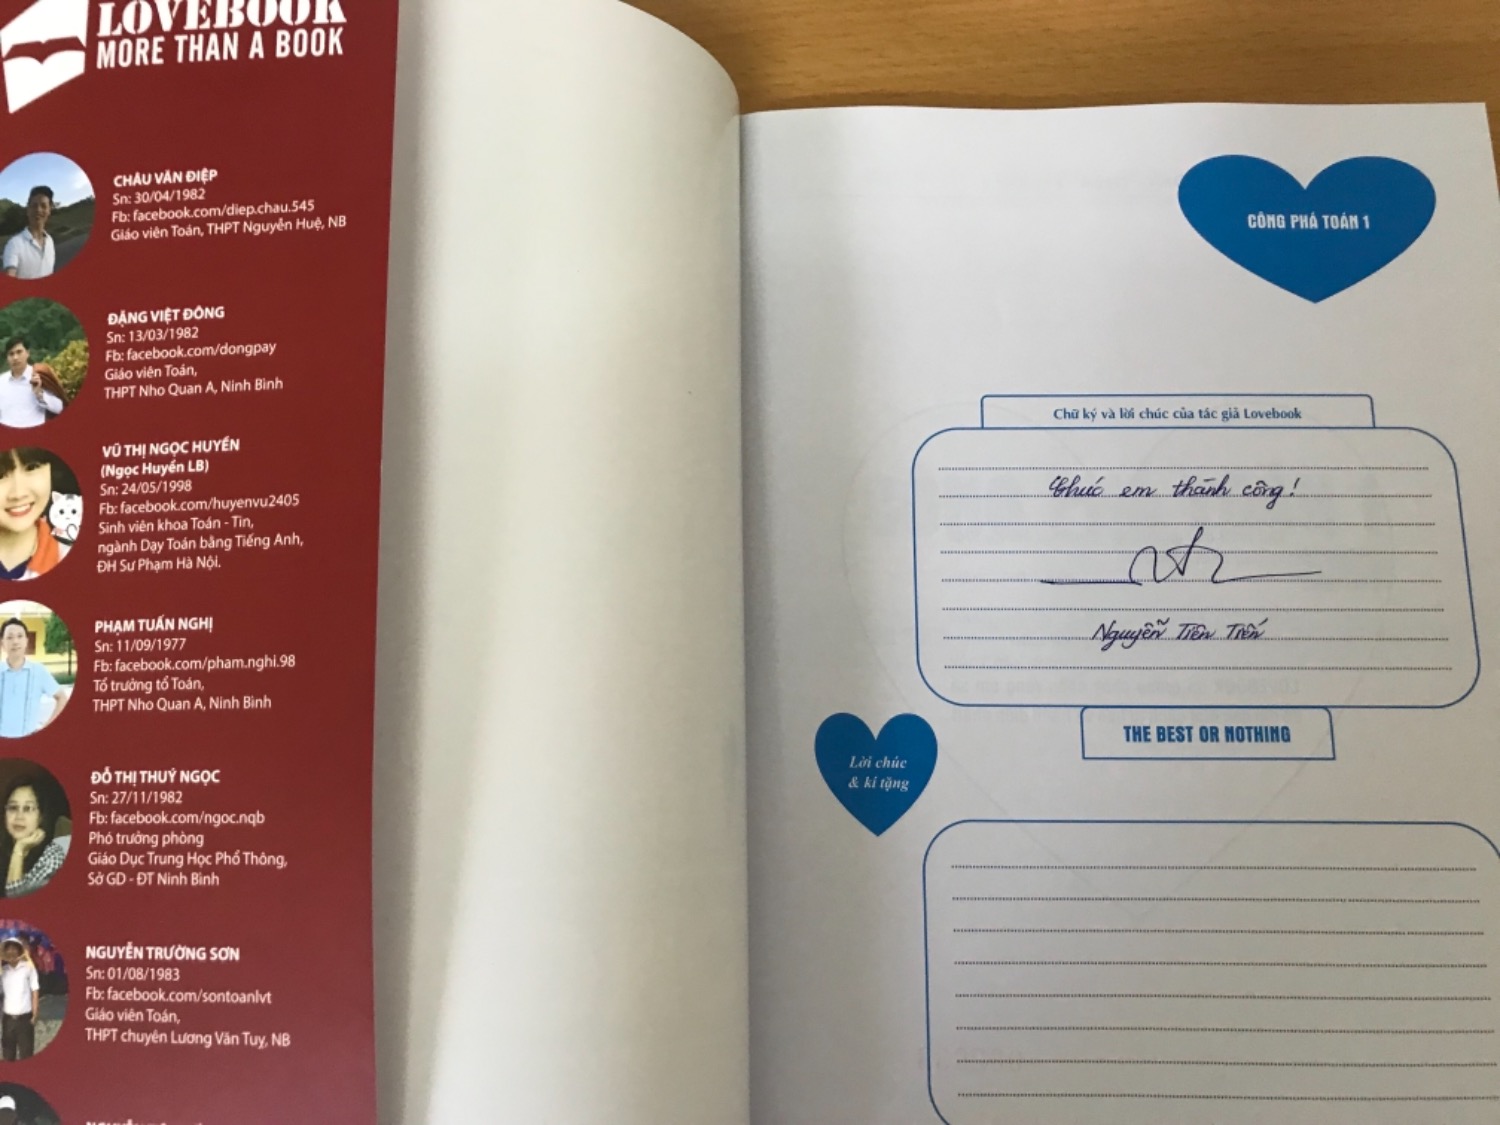 LOVEBOOK
MORE THAN A BOOK
CHÂU VĂN ĐIỆP
Sn: 30/04/1982
Fb: facebook.com/diep.chau.545
Giáo viên Toán, THPT Nguyễn Huệ, NB
ĐẶNG VIỆT ĐÔNG
Sn: 13/03/1982
Fb: facebook.com/dongpay
Giáo viên Toán,
THPT Nho Quan A, Ninh Bình
VŨ THỊ NGỌC HUYỀN
(Ngọc Huyền LB)
Sn: 24/05/1998
Fb: facebook.com/huyenvu2405
Sinh viên khoa Toán - Tin,
ngành Dạy Toán bằng Tiếng Anh,
ĐH Sư Phạm Hà Nội.
PHẠM TUẤN NGHỊ
Sn: 11/09/1977
Fb: facebook.com/pham.nghi.98
Tổ trưởng tổ Toán,
THPT Nho Quan A, Ninh Bình
ĐỖ THỊ THUÝ NGỌC
Sn: 27/11/1982
Fb: facebook.com/ngoc.nqb
Phó trưởng phòng
Giáo Dục Trung Học Phổ Thông,
Sở GD - ĐT Ninh Bình
NGUYỄN TRƯỜNG SƠN
Sn: 01/08/1983
Fb: facebook.com/sontoanlvt
Giáo viên Toán,
THPT chuyên Lương Văn Tuỵ, NB
CÔNG PHÁ TOÁN 1
Chữ ký và lời chúc của tác giả Lovebook
Chúc em thành công!
Nguyễn Tiên Tiến
THE BEST OR NOTHING
Lời chúc
& kí tặng